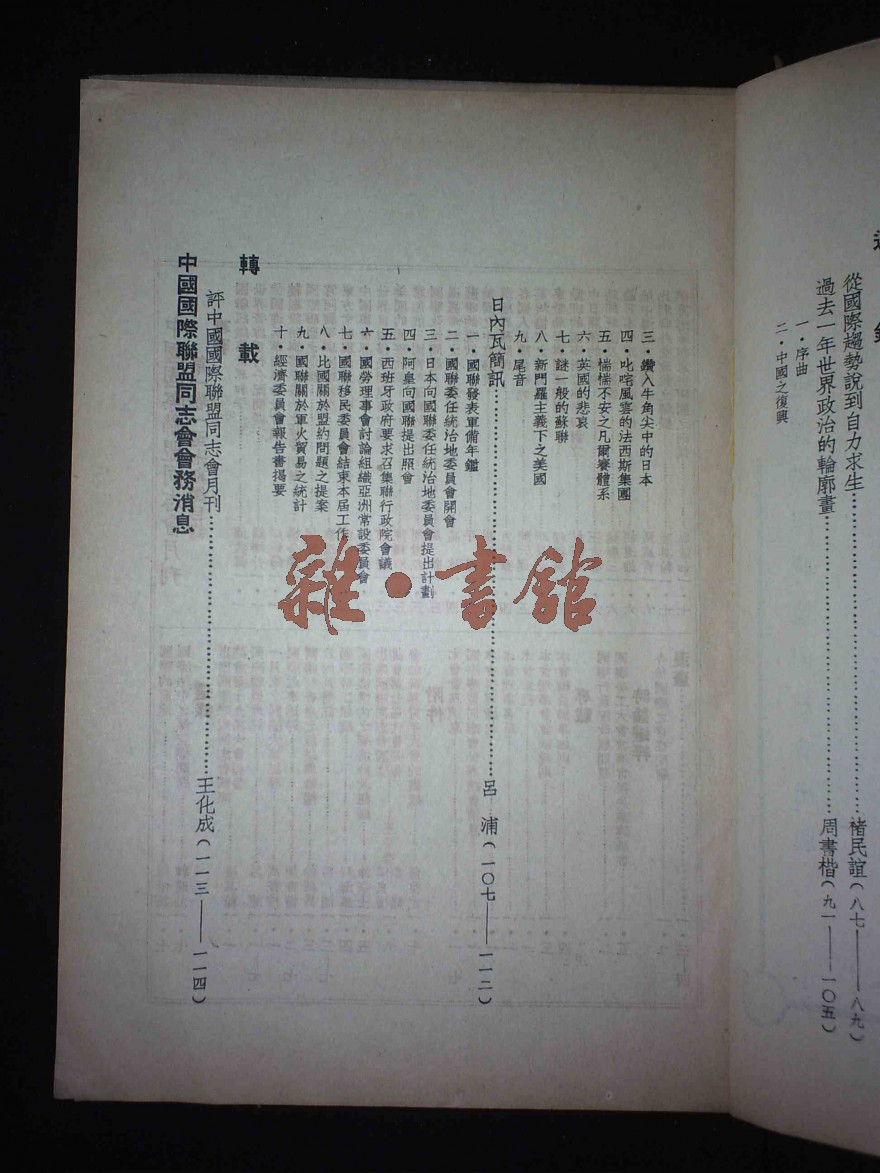 從國際趨勢說到自力求生……褚民誼(八七——八九)
過去一年世界政治的輪廓畫……周書楷(九一——一〇五)
一・序曲
二・中國之復興
三・鑽入牛角尖中的日本
四・叱咤風雲的法西斯集團
五・惴惴不安之凡爾賽體系
六・英國的悲哀
七・謎一般的蘇聯
八・新門羅主義下之美國
九・尾音
日內瓦簡訊……呂浦(一〇七——一一二)
一・國聯發表軍備年鑑
二・國聯委任統治地委員會開會
三・日本向國聯委任統治地委員會提出計劃
四・阿皇向國聯提出照會
五・西班牙政府要求召集聯行政院會議
六・國勞理事會討論組織亞洲常設委員會
七・國聯移民委員會結束本屆工作
八・比國關於盟約問題之提案
九・國聯關於軍火貿易之統計
十・經濟委員會報告書揭要
轉載
評中國國際聯盟同志會月刊……王化成(一一三——一一四)
中國國際聯盟同志會會務消息
雜・書館